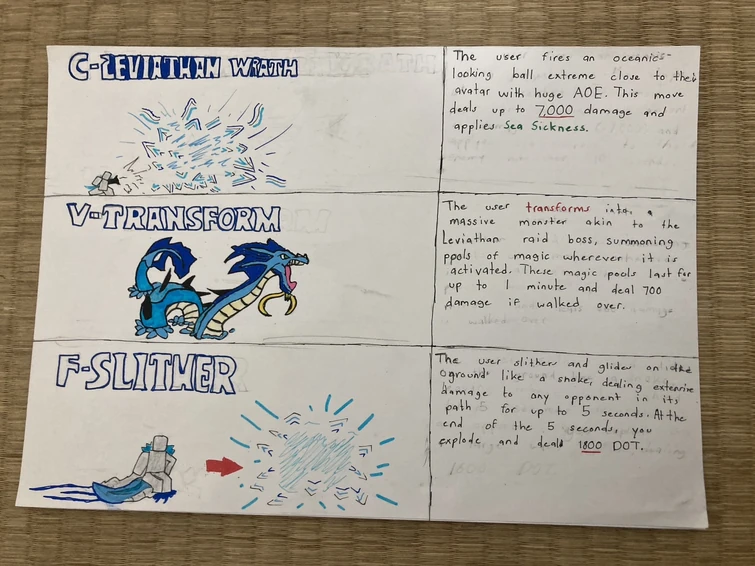 C-LEVIATHAN WRATH
The user fires an oceanic-
looking ball extreme close to the
avatar with huge AOE. This move
deals up to 7,000 damage and
applies Sea Sickness.
V-TRANSFORM
The user transforms into a
massive monster akin to the
Leviathan raid boss, summoning
pools of magic wherever it is
activated. These magic pools last for
up to 1 minute and deal 700
damage if walked over.
F-SLITHER
The user slither and glides on the
ground like a snake, dealing extensive
damage to any opponent in its
path for up to 5 seconds. At the
end of the 5 seconds, you
explode and deal 1800 DOT.